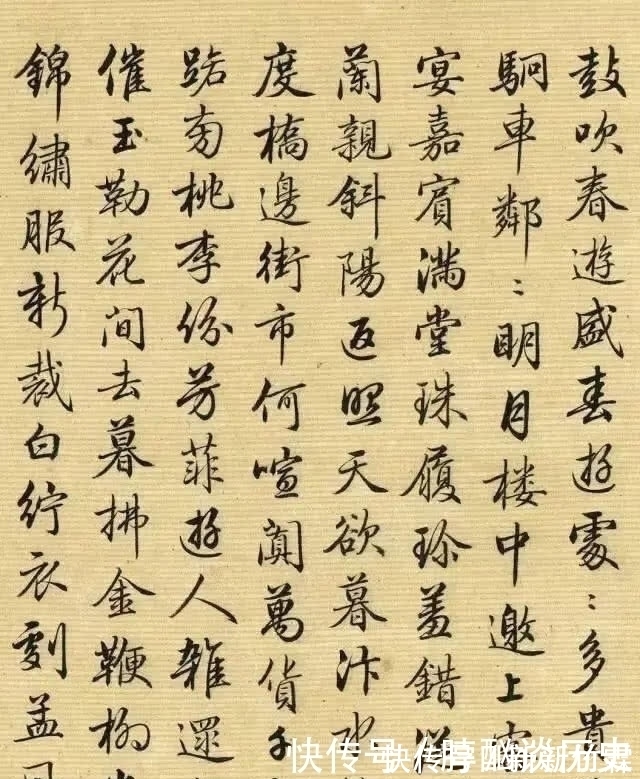 鼓吹春遊盛春遊處〻多貴
車鄰〻明月楼中邀上
宴嘉賓滿堂珠履珍羞錯
蘭親斜陽返照天欲暮汴水
度橋邊街市何喧闐萬貨千
路旁桃李紛芳菲遊人雜還
催玉勒花间去暮拂金鞭柳
錦繡服新裁白紵衣
快传号